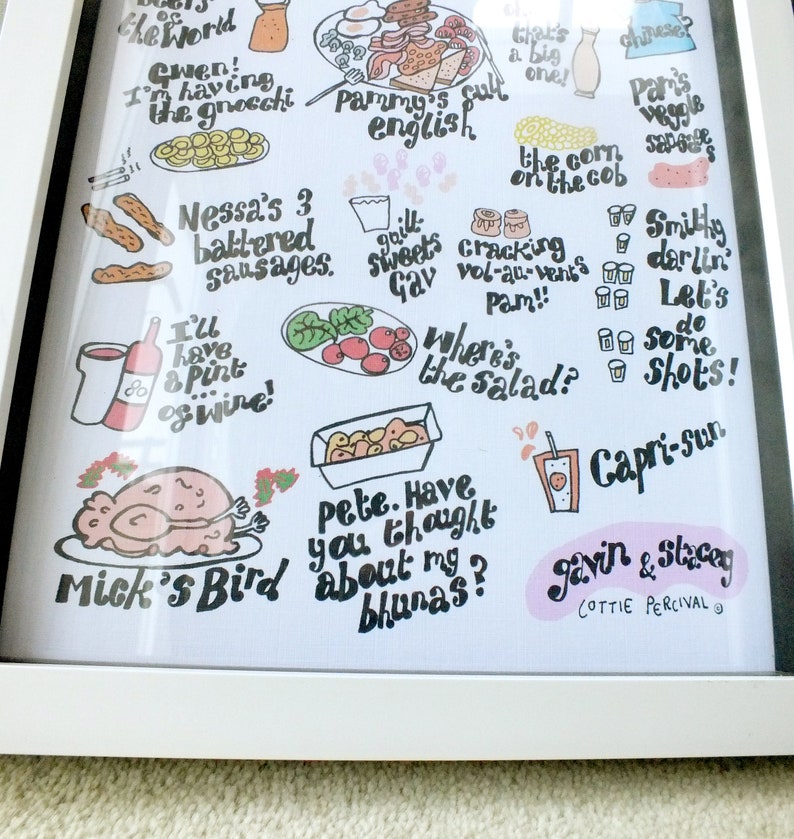 of
the World
that's
a big
one!
chinese?
Gwen!
I'm having
the gnocchi
Pammy's full
english
the corn
on the cob
Pam's
veggie
sausages
Nessa's 3
battered
sausages.
guilt
sweets
Gav
cracking
vol-au-vents
Pam!!
Smithy
darlin'
Let's
do
some
shots!
I'll
have
a pint
...
of wine!
Where's
the salad?
Mick's Bird
Pete. Have
you thought
about my
bhunas?
Capri-sun
gavin & stacey
LOTTIE PERCIVAL ©